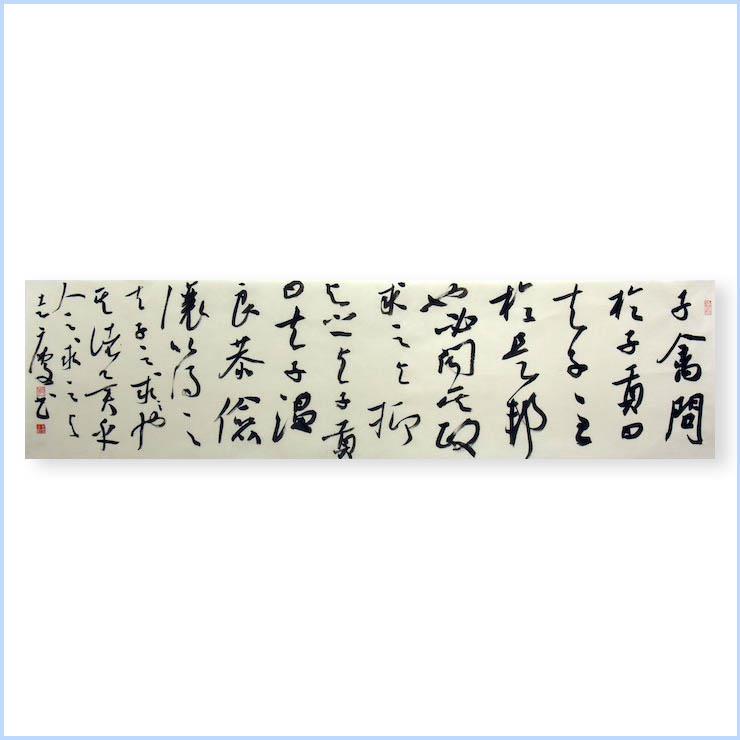 子禽問
於子貢曰
夫子至
於是邦
也必聞其政
求之与抑
与之与子貢
曰夫子温
良恭儉
讓以得之
夫子之求之也
其諸異乎
人之求之与